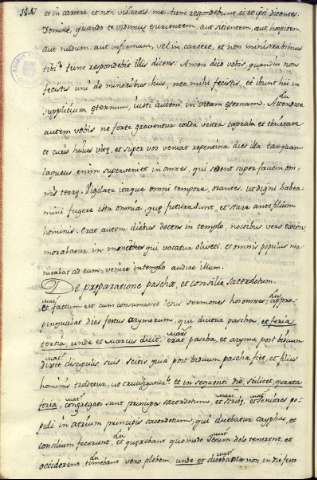 et in carcere et non visitastis me. tunc respondebunt ei et ipsi dicentes.
Domine, quando te vidimus esurientem, aut sitientem, aut hospitem
aut nudum, aut infirmum, vel in carcere, et non ministravimus
tibi? tunc respondebit illis dicens. Amen dico vobis, quandiu non
fecistis uni de minoribus his, nec mihi fecistis, et ibunt hi in
supplicium eternum, iusti autem in vitam eternam. Attendite
autem vobis ne forte graventur corda vestra crapula et
et curis huius vite, et super vos veniat repentina dies illa tanquam
laqueus enim superveniet in omnes, qui sedent super faciem om-
nis terre. Vigilate itaque omni tempore, orantes, ut digni habea-
mini fugere ista omnia, que futura sunt, et stare ante filium
hominis. Erat autem diebus docens in templo, noctibus vero exiens
morabatur in monte qui vocatur oliveti, et omnis populus ma-
nicabat ad eum, venire in templo audire illum.
De preparatione pasche, et consilio sacerdotum.
et factum est cum consumasset Iesus sermones hos omnes,
pinquabat dies festus azymorum, qui dicitur pascha, et feria
tertia, unde et marcus dicit. erat pascha, et azyma post biduum
dixit discipulis suis scitis quia post biduum pascha fiet, et filius
hominis tradetur, ut crucifigatur. et in sequenti die, scilicet, quarta
feria, congregati sunt principes sacerdotum et scribe, et seniores po-
puli in atrium principis sacerdotum, qui dicebatur cayphas, et
consilium fecerunt, et querebant quomodo Iesum dolo tenerent, et
occiderent timebant vero plebem, unde et dicebant non in die festo